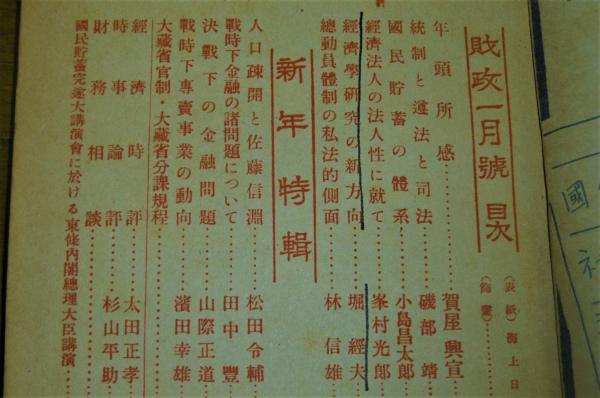 財政一月號目次
(表紙) 海上日
(飾畫)
年頭所感……賀屋興宣
統制と遵法と司法……磯部靖
國民貯蓄の體系……小島昌太郎
經濟法人の法人性に就て……峯村光郎
經濟學研究の新方向……堀經夫
總動員體制の私法的側面……林信雄
新年特輯
人口疎開と佐藤信淵……松田令輔
戰時下金融の諸問題について……田中豐
決戰下の金融問題……山際正道
戰時下專賣事業の動向……濱田幸雄
大藏省官制・大藏省分課規程……
經濟時評……太田正孝
時事論評……杉山平助
財務相談……
國民貯蓄完遂大講演會に於ける東條內閣總理大臣講演……
國
社